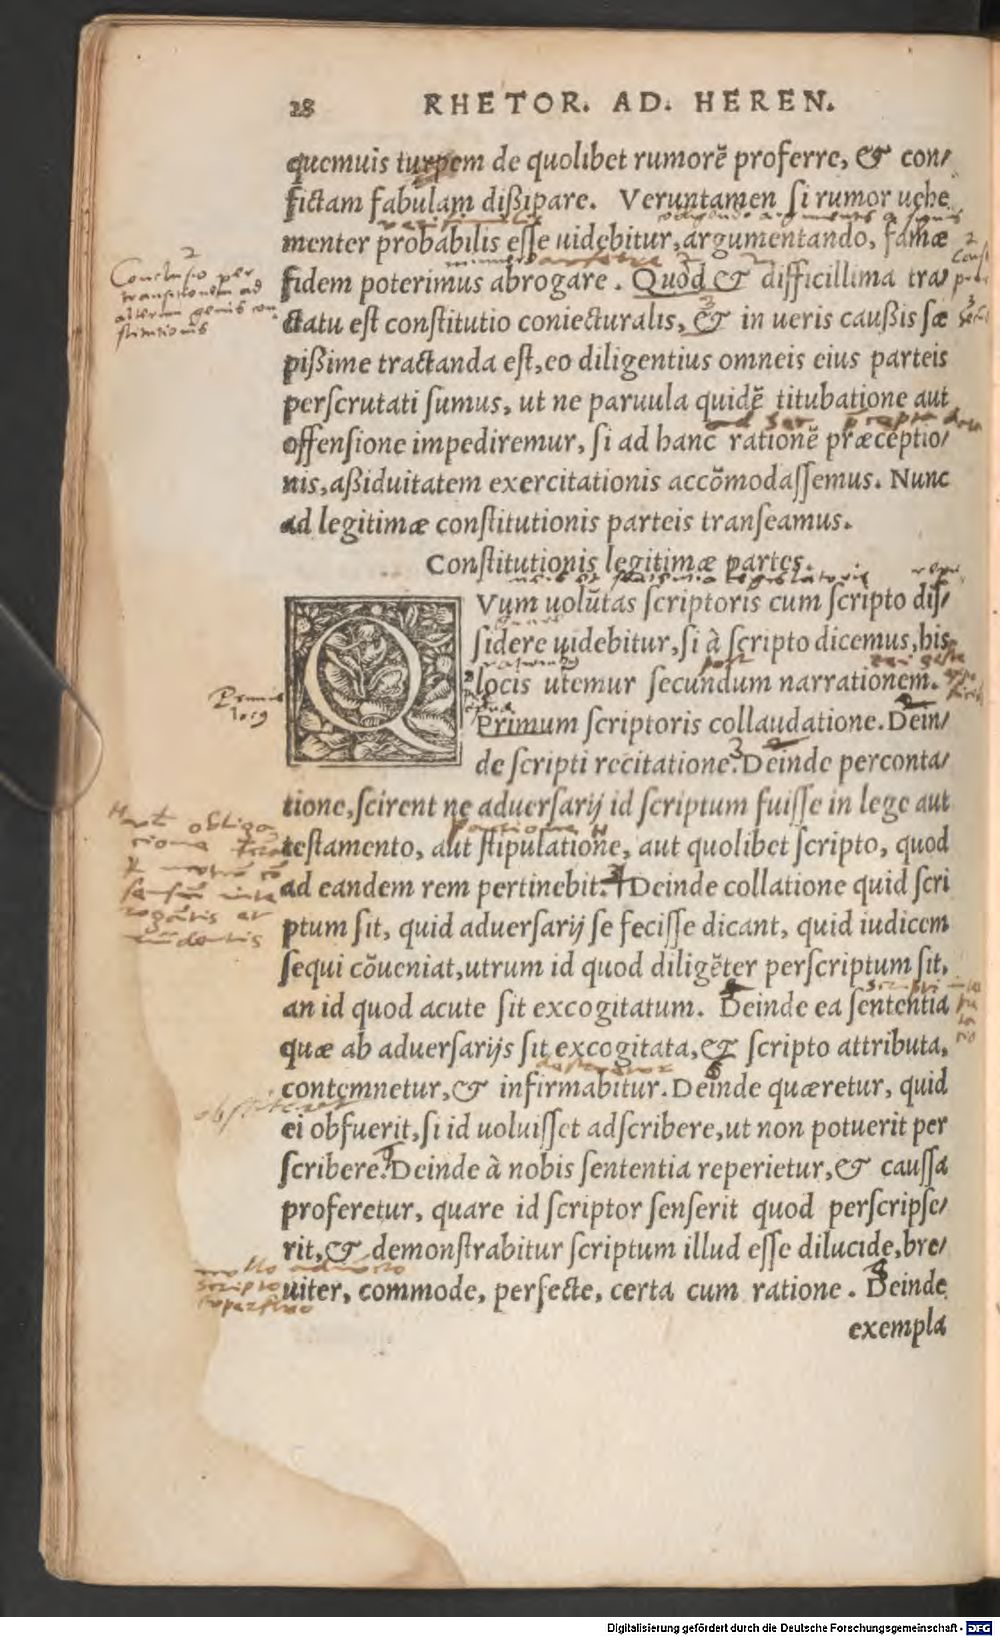 28 RHETOR. AD. HEREN.
quemuis turpem de quolibet rumorē proferre, & con/
fictam fabulam dißipare. Veruntamen si rumor uehe
menter probabilis esse uidebitur, argumentando, famæ
fidem poterimus abrogare. Quod & difficillima tra/
ctatu est constitutio coniecturalis, & in ueris caußis sæ
pißime tractanda est, eo diligentius omneis eius parteis
perscrutati sumus, ut ne paruula quidē titubatione aut
offensione impediremur, si ad hanc rationē præceptio/
nis, aßiduitatem exercitationis accōmodassemus. Nunc
ad legitimæ constitutionis parteis transeamus.
Constitutionis legitimæ partes.
QVum uolūtas scriptoris cum scripto dis/
sidere uidebitur, si à scripto dicemus, his
locis utemur secundum narrationem.
Primum scriptoris collaudatione. Dein/
de scripti recitatione. Deinde perconta/
tione, scirent ne aduersarij id scriptum fuisse in lege aut
testamento, aut stipulatione, aut quolibet scripto, quod
ad eandem rem pertinebit. Deinde collatione quid scri
ptum sit, quid aduersarij se fecisse dicant, quid iudicem
sequi cōueniat, utrum id quod diligēter perscriptum sit,
an id quod acute sit excogitatum. Deinde ea sententia
quæ ab aduersarijs sit excogitata, & scripto attributa,
contemnetur, & infirmabitur. Deinde quæretur, quid
ei obfuerit, si id uoluisset adscribere, ut non potuerit per
scribere. Deinde à nobis sententia reperietur, & caussa
proferetur, quare id scriptor senserit quod perscripse/
rit, & demonstrabitur scriptum illud esse dilucide, bre/
uiter, commode, perfecte, certa cum ratione. Deinde
exempla
2
Conclusio per
transitionem ad
alteram genus con
stitutionis
Primus
locus
Digitalisierung gefördert durch die Deutsche Forschungsgemeinschaft - DFG